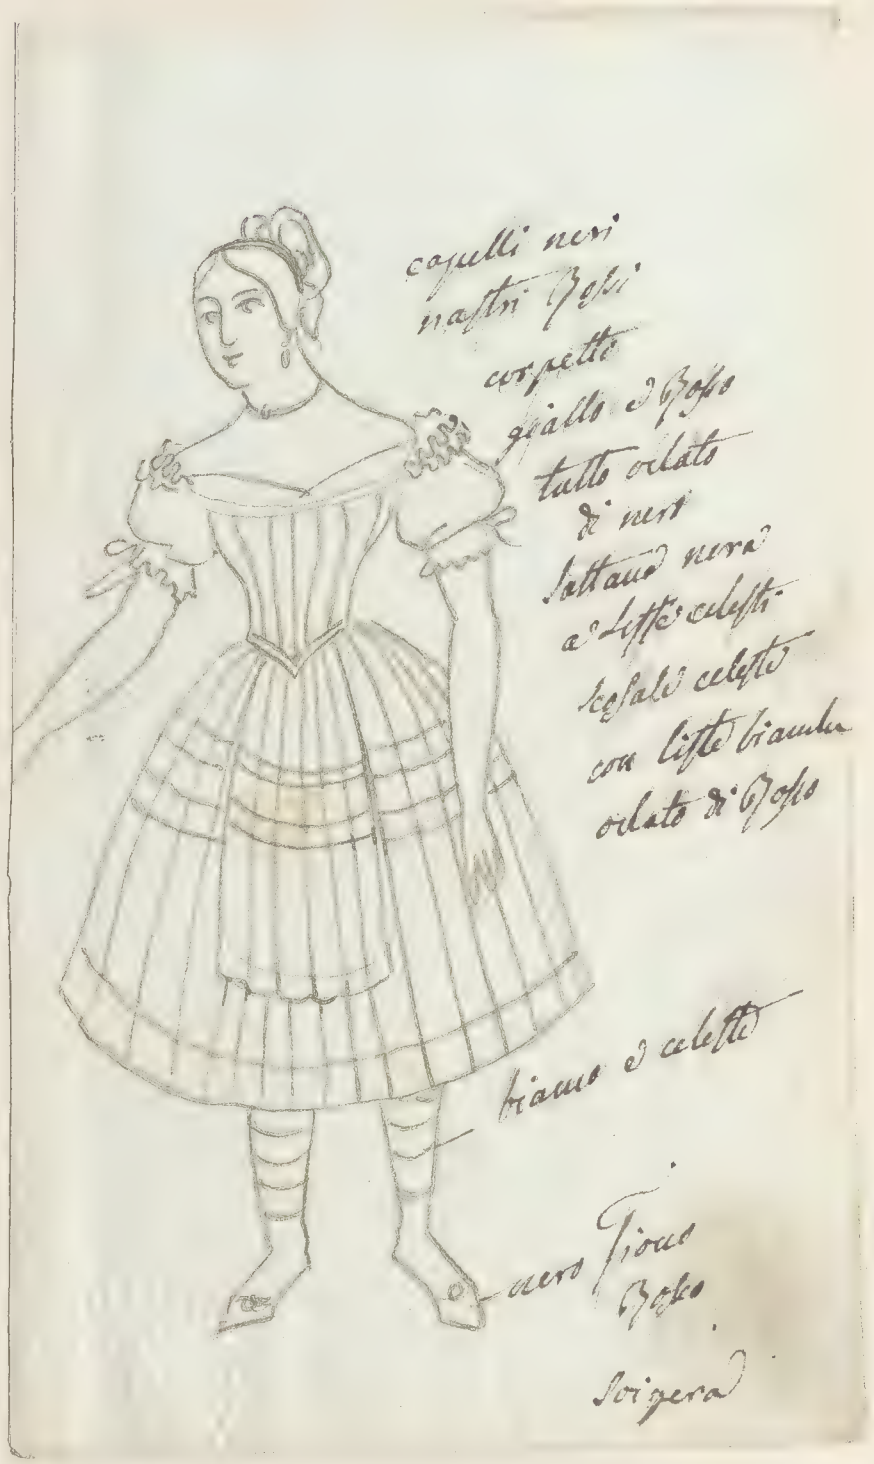 capelli neri
nastri Rossi
corpetto
giallo e Rosso
tutto orlato
di nero
sottana nera
a liste celesti
scosale celeste
con liste bianche
orlato di Rosso
bianco e celeste
nero Fioco
Rosso
Svizera